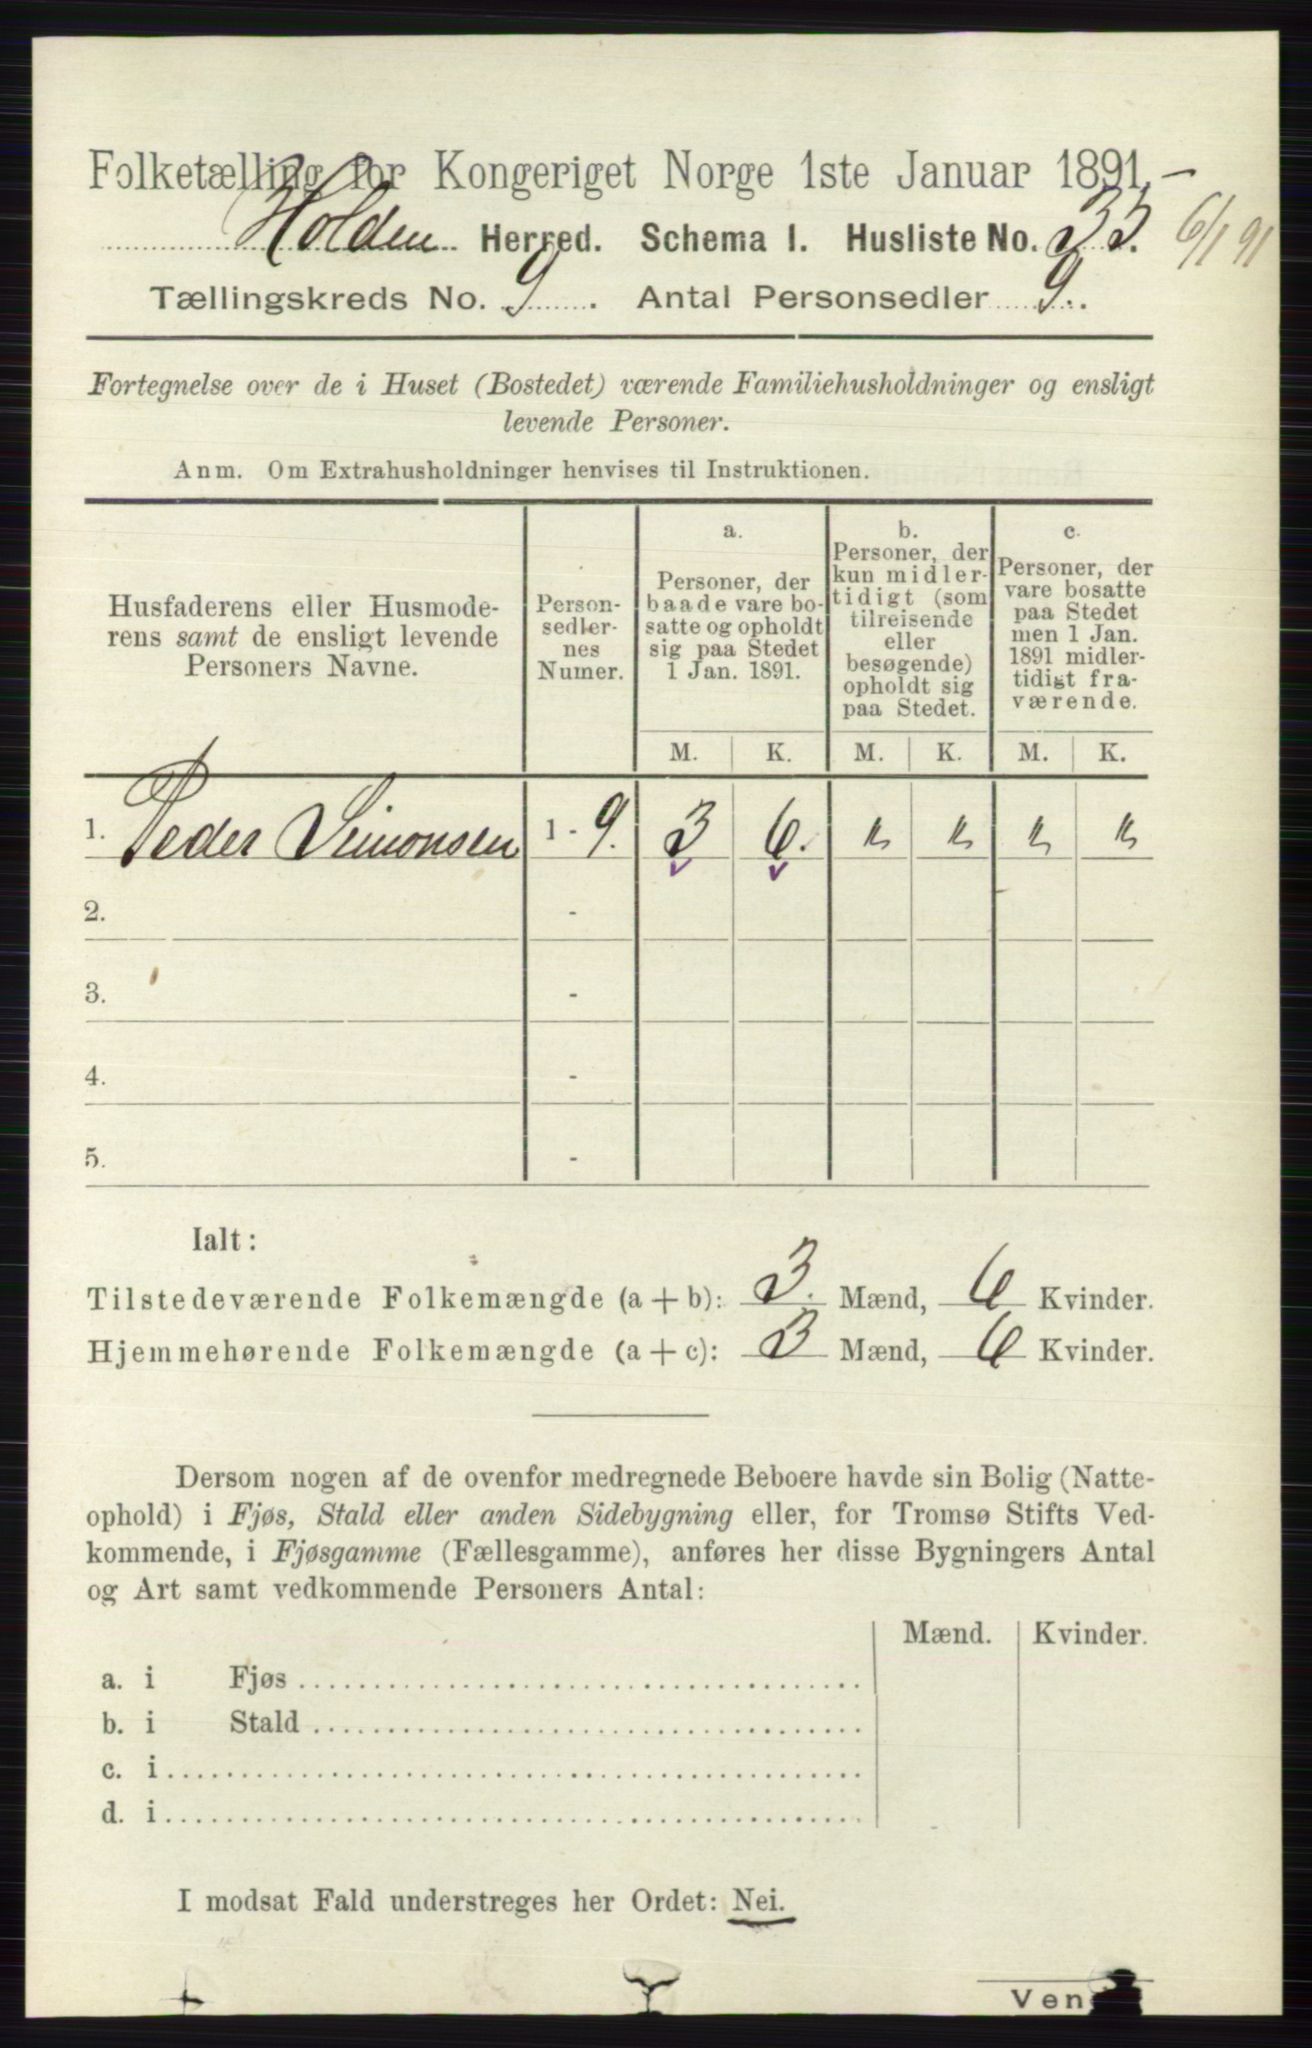 Folketælling for Kongeriget Norge 1ste Januar 1891.
Holden Herred. Schema I. Husliste No. 33. 6/1 91
Tællingskreds No. 9. Antal Personsedler 9.
Fortegnelse over de i Huset (Bostedet) værende Familiehusholdninger og ensligt
levende Personer.
Anm. Om Extrahusholdninger henvises til Instruktionen.
Husfaderens eller Husmode-
rens samt de ensligt levende
Personers Navne.
Person-
sedler-
nes
Numer.
a.
Personer, der
baade vare bo-
satte og opholdt
sig paa Stedet
1 Jan. 1891.
b.
Personer, der
kun midler-
tidigt (som
tilreisende
eller
besøgende)
opholdt sig
paa Stedet.
c.
Personer, der
vare bosatte
paa Stedet
men 1 Jan.
1891 midler-
tidigt fra-
værende.
M. K. M. K. M. K.
1. Peder Simonsen 1 - 9. 3 6. " " " "
2. -
3. -
4. -
5. -
Ialt:
Tilstedeværende Folkemængde (a + b): 3. Mænd, 6 Kvinder.
Hjemmehørende Folkemængde (a + c): 3 Mænd, 6 Kvinder.
Dersom nogen af de ovenfor medregnede Beboere havde sin Bolig (Natte-
ophold) i Fjøs, Stald eller anden Sidebygning eller, for Tromsø Stifts Ved-
kommende, i Fjøsgamme (Fællesgamme), anføres her disse Bygningers Antal
og Art samt vedkommende Personers Antal:
Mænd. Kvinder.
a. i Fjøs
b. i Stald
c. i
d. i
I modsat Fald understreges her Ordet: Nei.
Ven